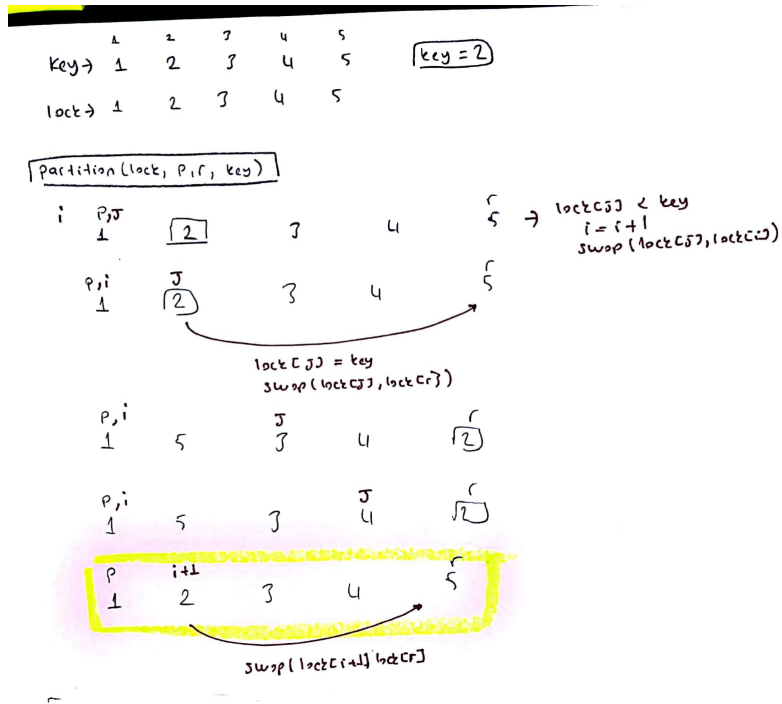 1 2 3 4 5
key→ 1 2 3 4 5 key = 2
lock→ 1 2 3 4 5
Partition(lock, p,r, key)
i p,J r
1 2 3 4 5 → lock[j] < key
i = i+1
swap(lock[j], lock[i])
p,i J r
1 2 3 4 5
lock[J] = key
swap(lock[j], lock[r])
p,i J r
1 5 3 4 2
p,i J r
1 5 3 4 2
p i+1 r
1 2 3 4 5
swap(lock[i+1] lock[r]